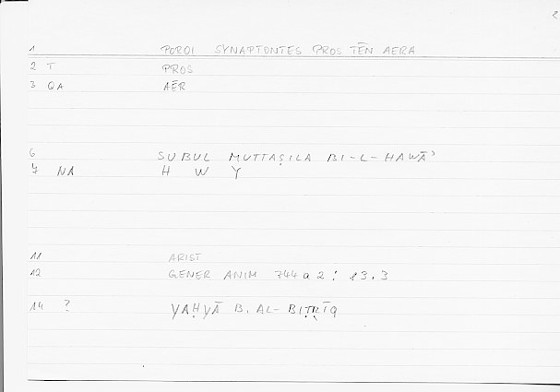 1 POROI SYNAPTONTES PROS TĒN AERA
2 T PROS
3 QA AĒR
6 SUBUL MUTTAṢILA BI-L-HAWĀʾ
7 NA H W Y
11 ARIST
12 GENER ANIM 744 a 2 : 13.3
14 ? YAḤYĀ B. AL-BIṬRĪQ